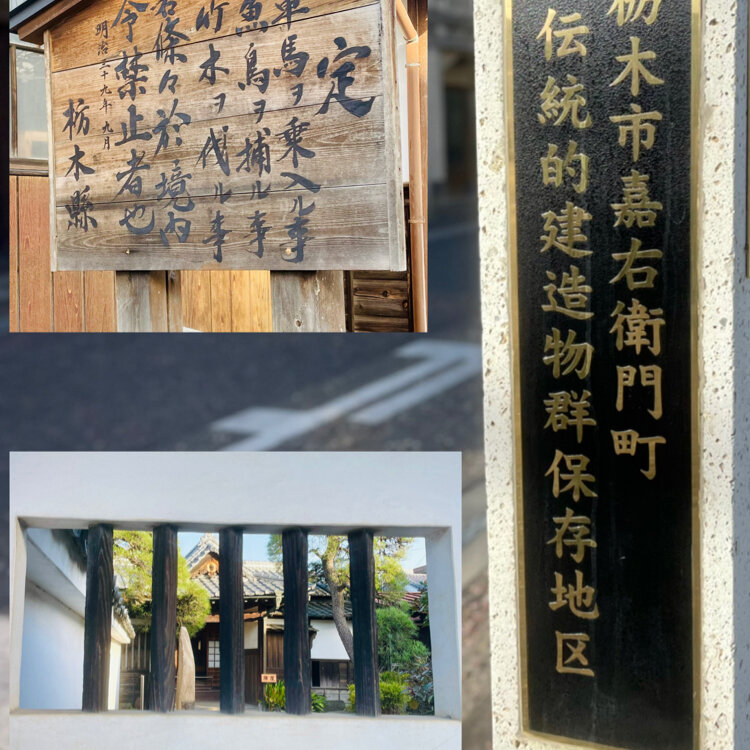 定
車馬ヲ乗入ル事
魚鳥ヲ捕ル事
竹木ヲ伐ル事
右條々於境内
令禁止者也
明治三十九年九月
栃木縣
栃木市嘉右衛門町
伝統的建造物群保存地区